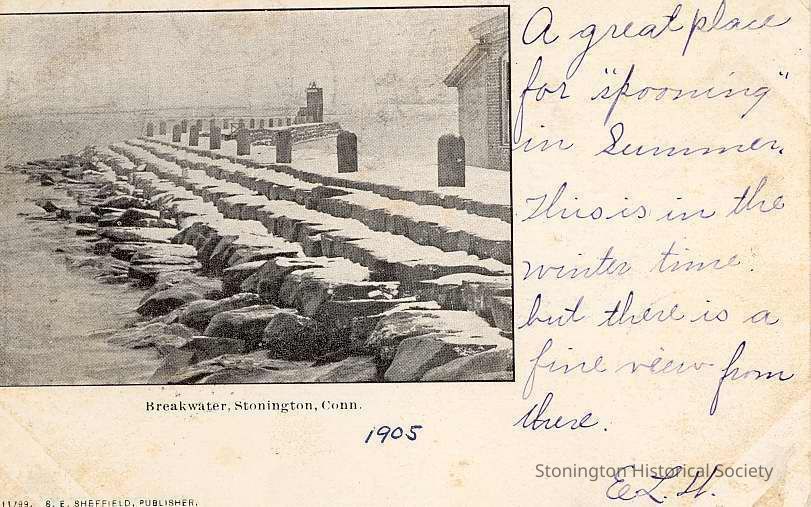 A great place
for "spooning"
in Summer.
This is in the
winter time.
but there is a
fine view from
there.
E.L.H.
Breakwater, Stonington, Conn.
1905
Stonington Historical Society
11799. S. E. SHEFFIELD, PUBLISHER.